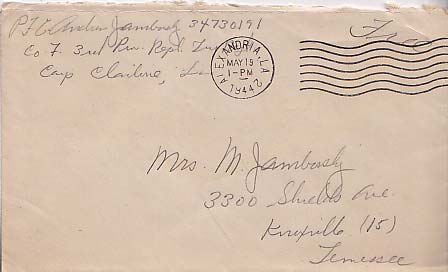 Pfc Andrew Jambosky 34730191 Free
Co F. 3rd Prov. Repl.
Camp Claiborne, La
ALEXANDRIA, LA.
MAY 19
1-PM
1944
Mrs. M. Jambosky
3300 Shields Ave.
Knoxville (15)
Tennessee